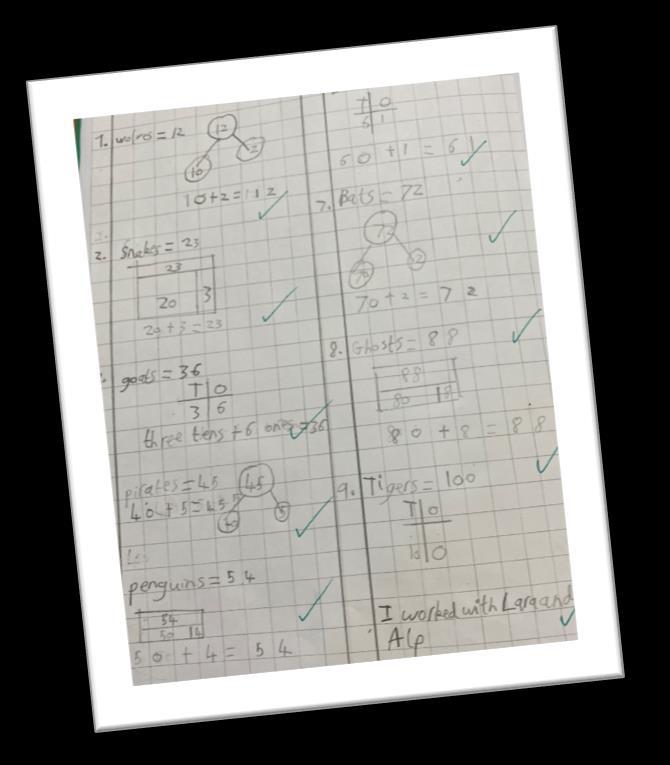 1. wolros = 12
12
10 2
10+2=112
2. Snakes = 23
23
20 3
20+3=23
goats = 36
T O
3 6
three tens + 6 ones =36
pirates = 45
45
40+5=45
40 5
penguins = 54
54
50 4
50 + 4 = 54
T O
6 1
60 + 1 = 61
7. Bats = 72
72
70 2
70+2 = 72
8. Ghosts = 88
88
80 8
80 + 8 = 88
9. Tigers = 100
T O
10 0
I worked with Lara and
Alp